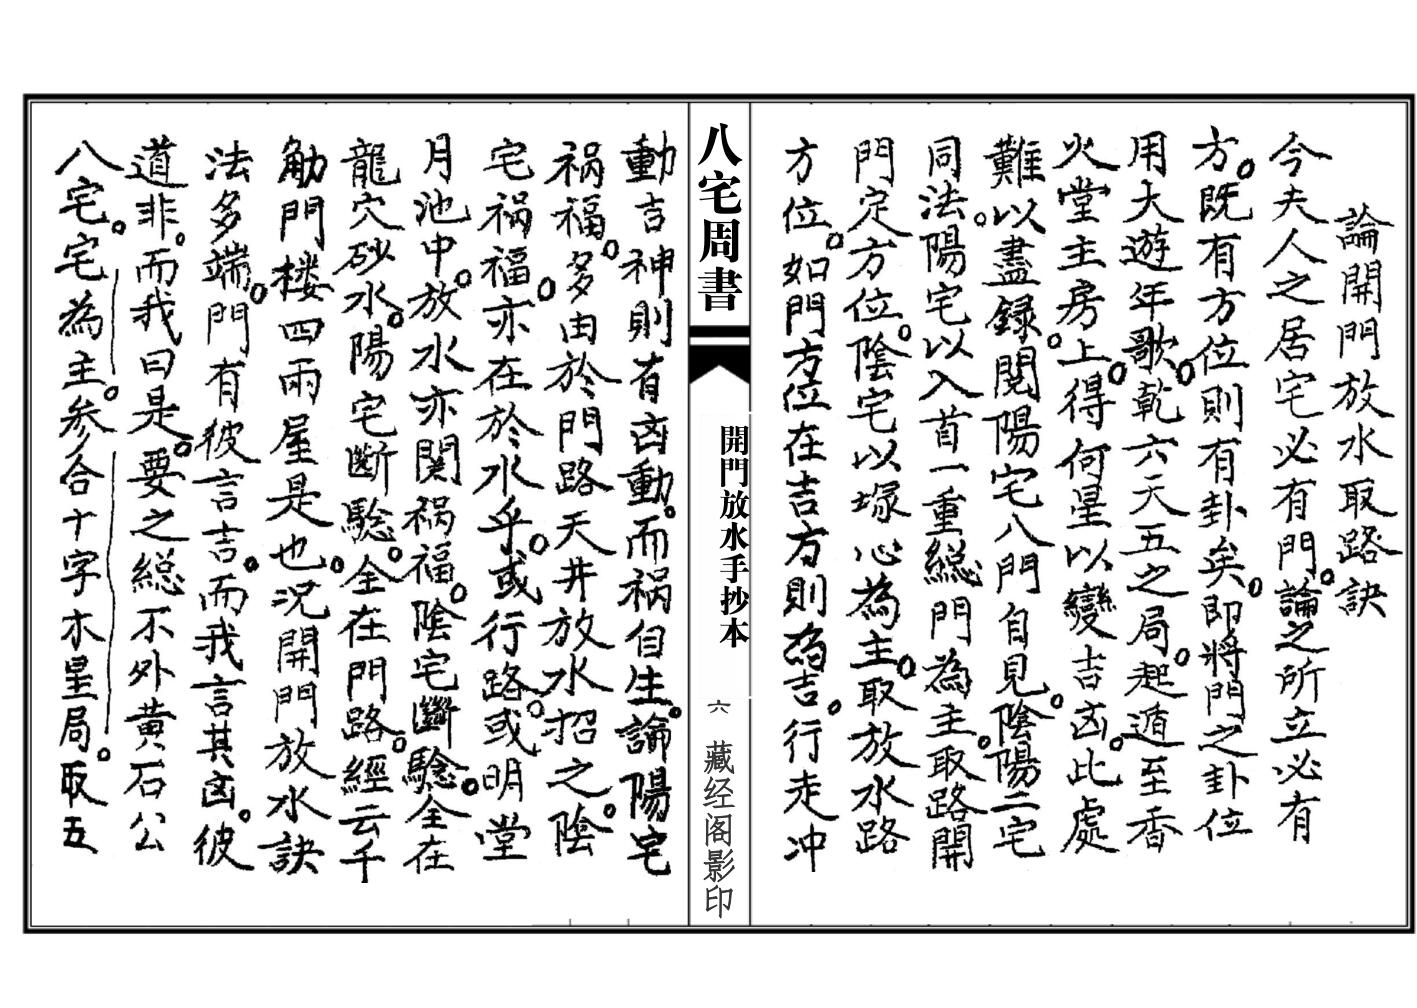 論開門放水取路訣
今夫人之居宅必有門。論之所立必有
方。既有方位則有卦矣。即將門之卦位
用大遊年歌。乾六天五之局。起遁至香
火堂主房上。得何星以變吉凶。此處
難以盡錄。閱陽宅八門自見。陰陽二宅
同法。陽宅以入首一重總門為主。取路開
門定方位。陰宅以塚心為主。取放水路
方位。如門方位在吉方則為吉。行走冲
八宅周書
開門放水手抄本
六
藏经阁影印
動吉神則有凶動。而祸自生。論陽宅
祸福。多由於門路天井放水招之。陰
宅祸福。亦在於水乎。或行路。或明堂
月池中。放水亦関祸福。陰宅斷驗。全在
龍穴砂水。陽宅斷驗。全在門路。經云千
觔門楼四两屋是也。况開門放水訣
法多端。門有彼言吉。而我言其凶。彼
道非。而我曰是。要之総不外黄石公
八宅。宅為主。参合十字木星局。取五